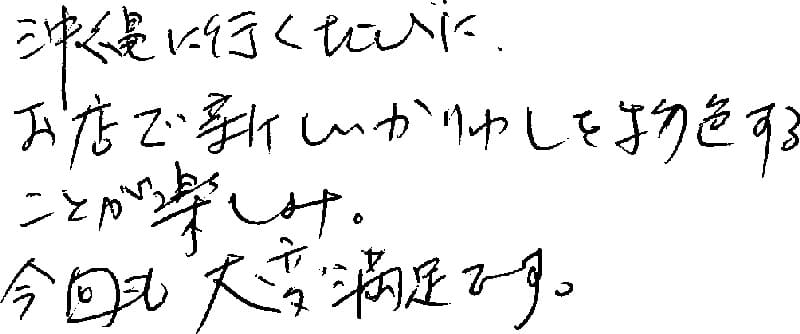 沖縄に行くたびに、
お店で新しいかりゆしを物色する
ことが楽しみ。
今回も大変満足です。